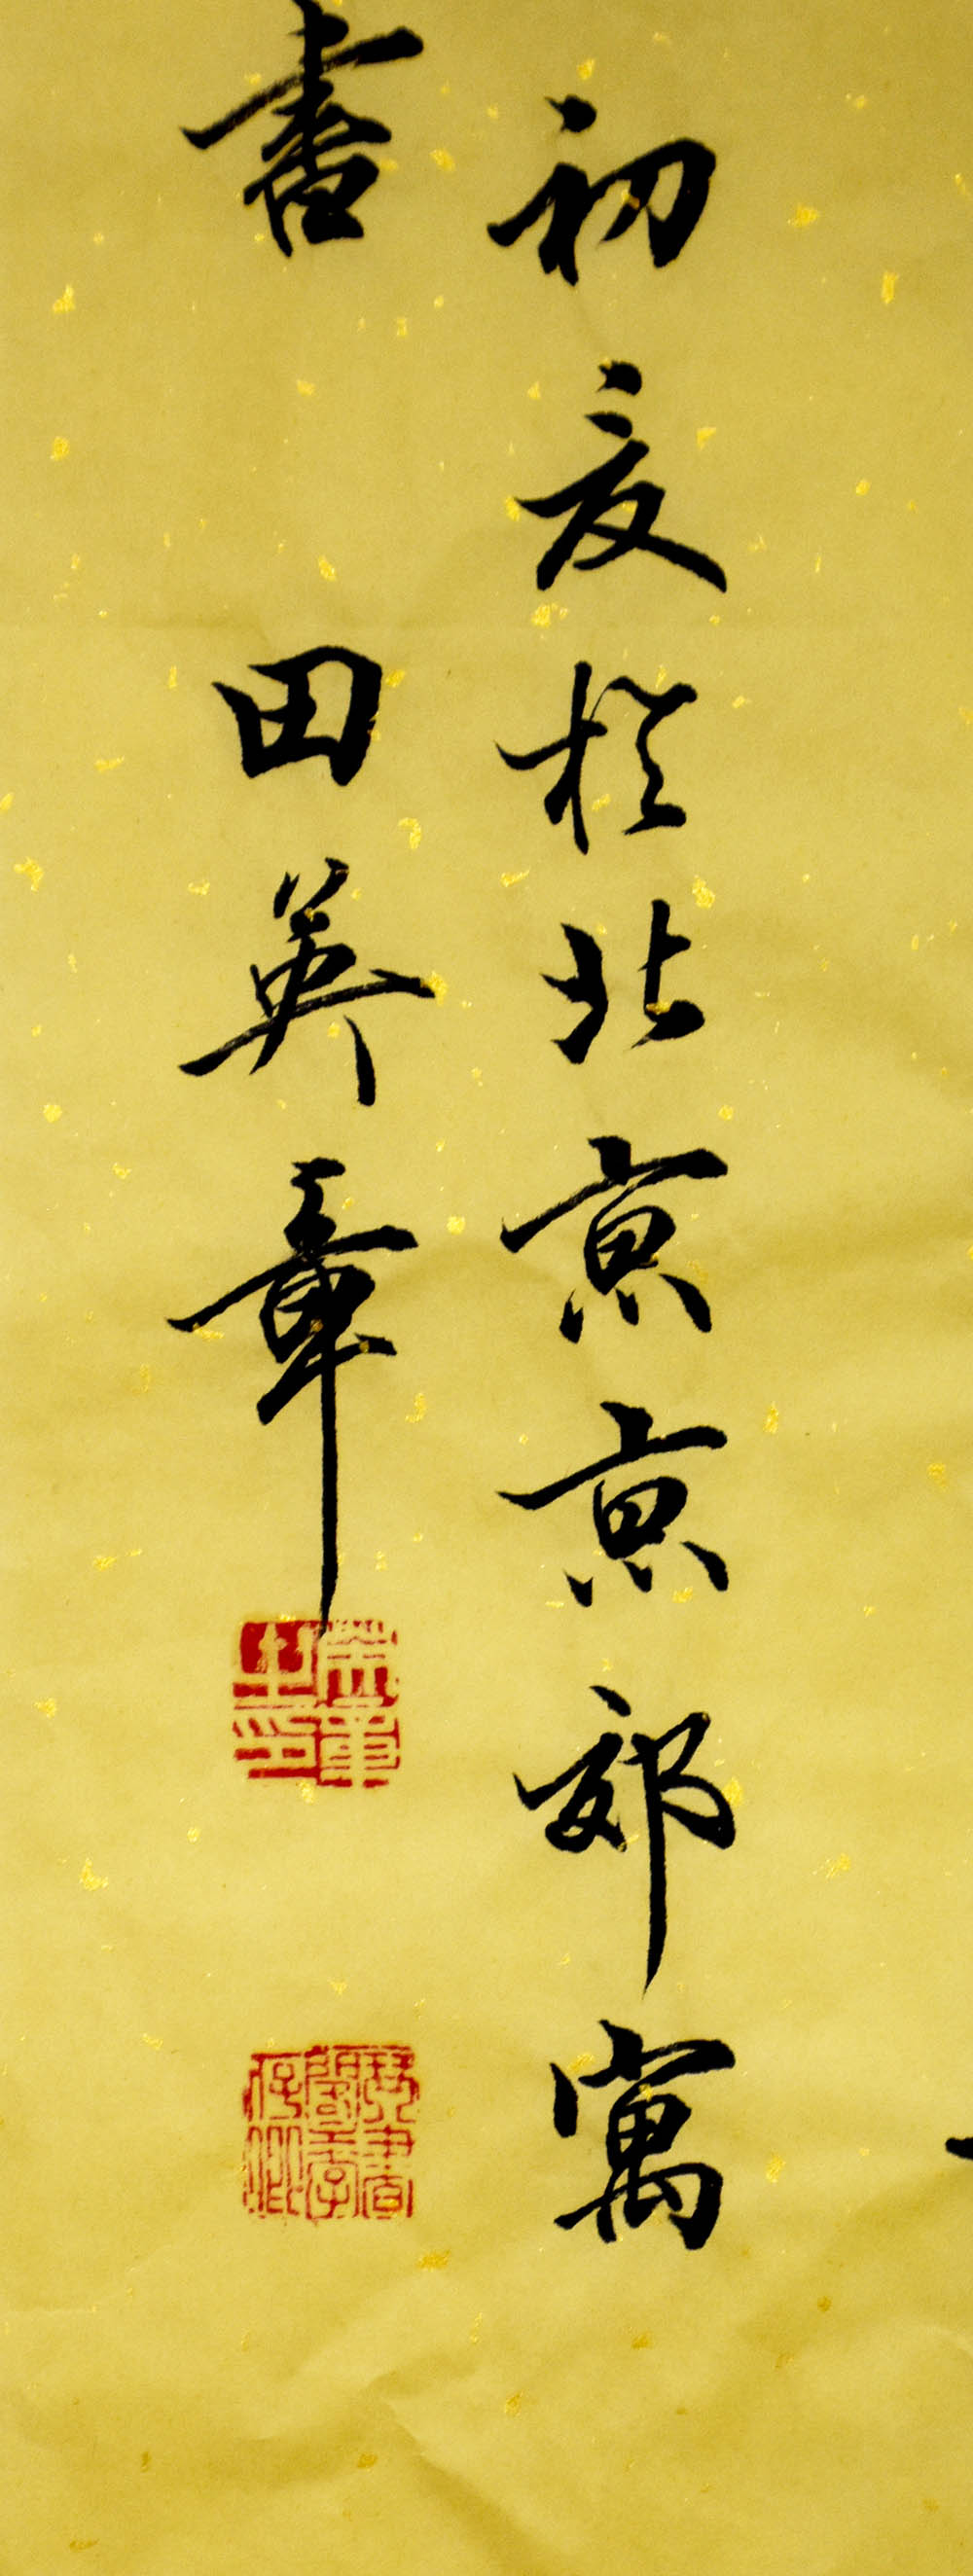 初夏於北京京郊寓
書 田英章